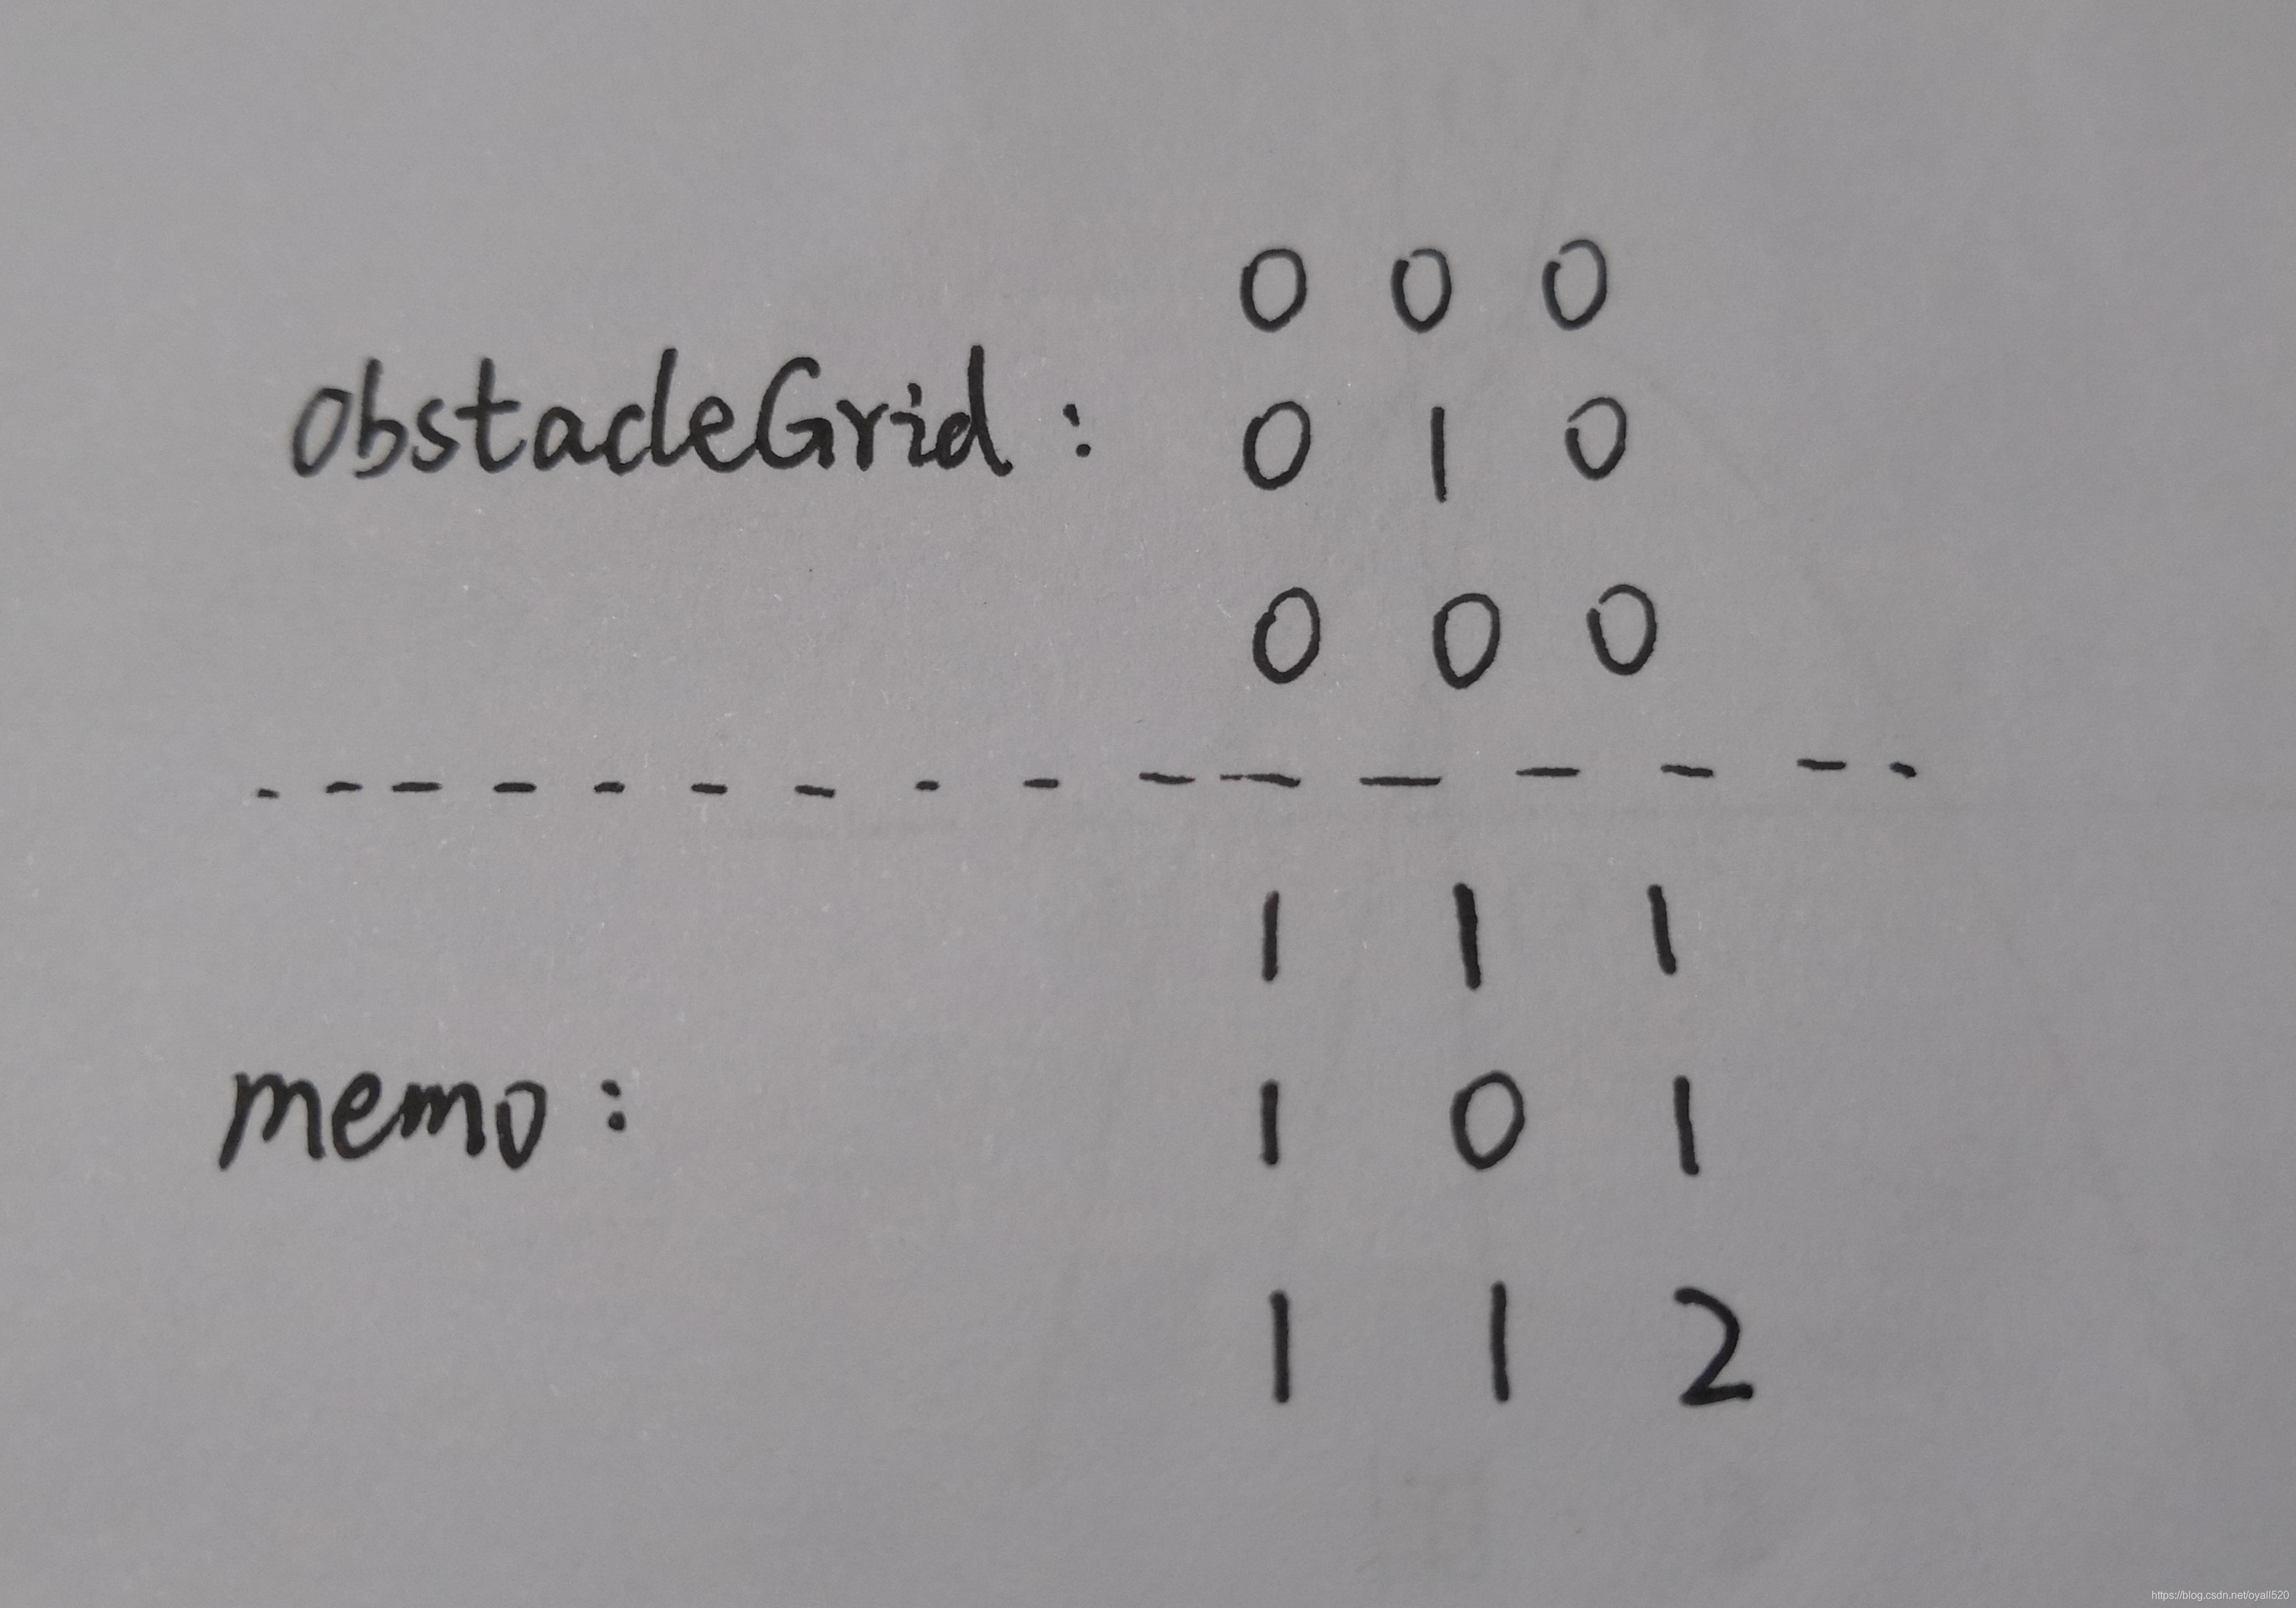 0 0 0
obstacleGrid : 0 1 0
0 0 0
1 1 1
memo : 1 0 1
1 1 2
https://blog.csdn.net/oyall520